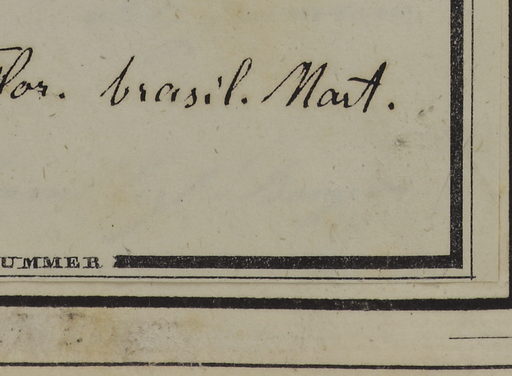 Flor. brasil. Mart.
UMMER